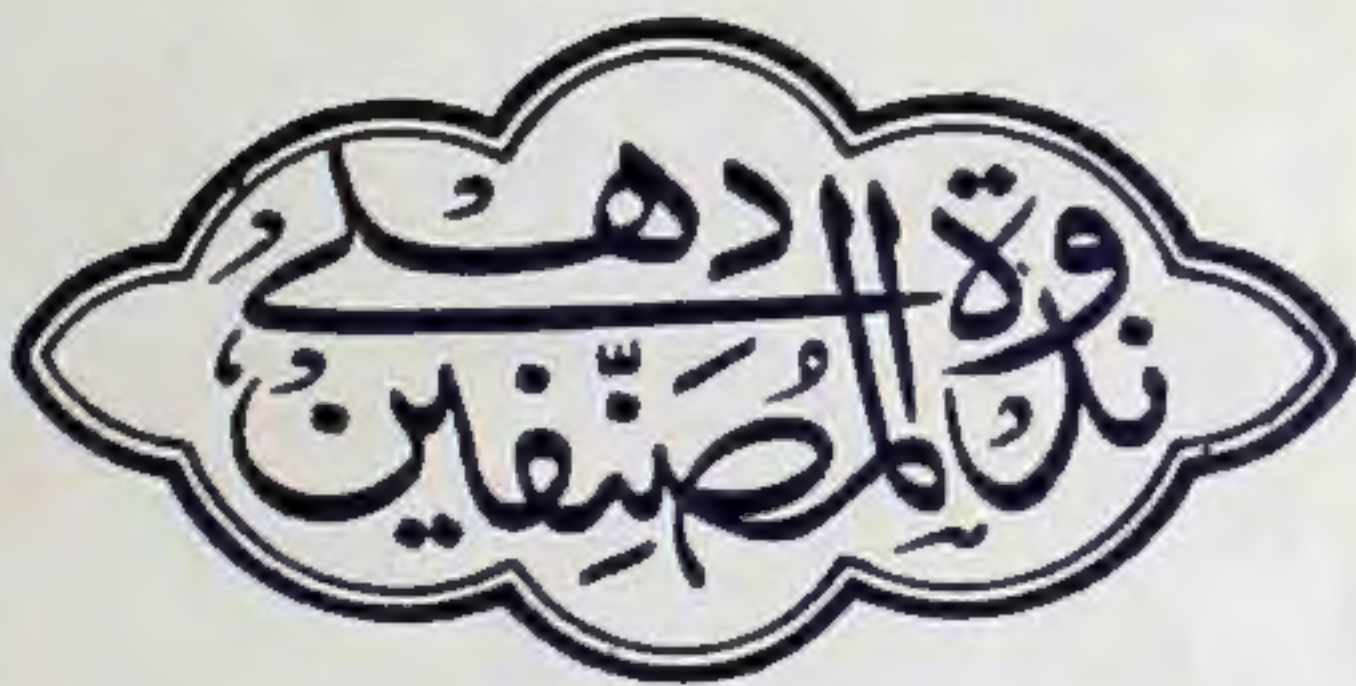 ندوة المُصَنِّفين دهلی